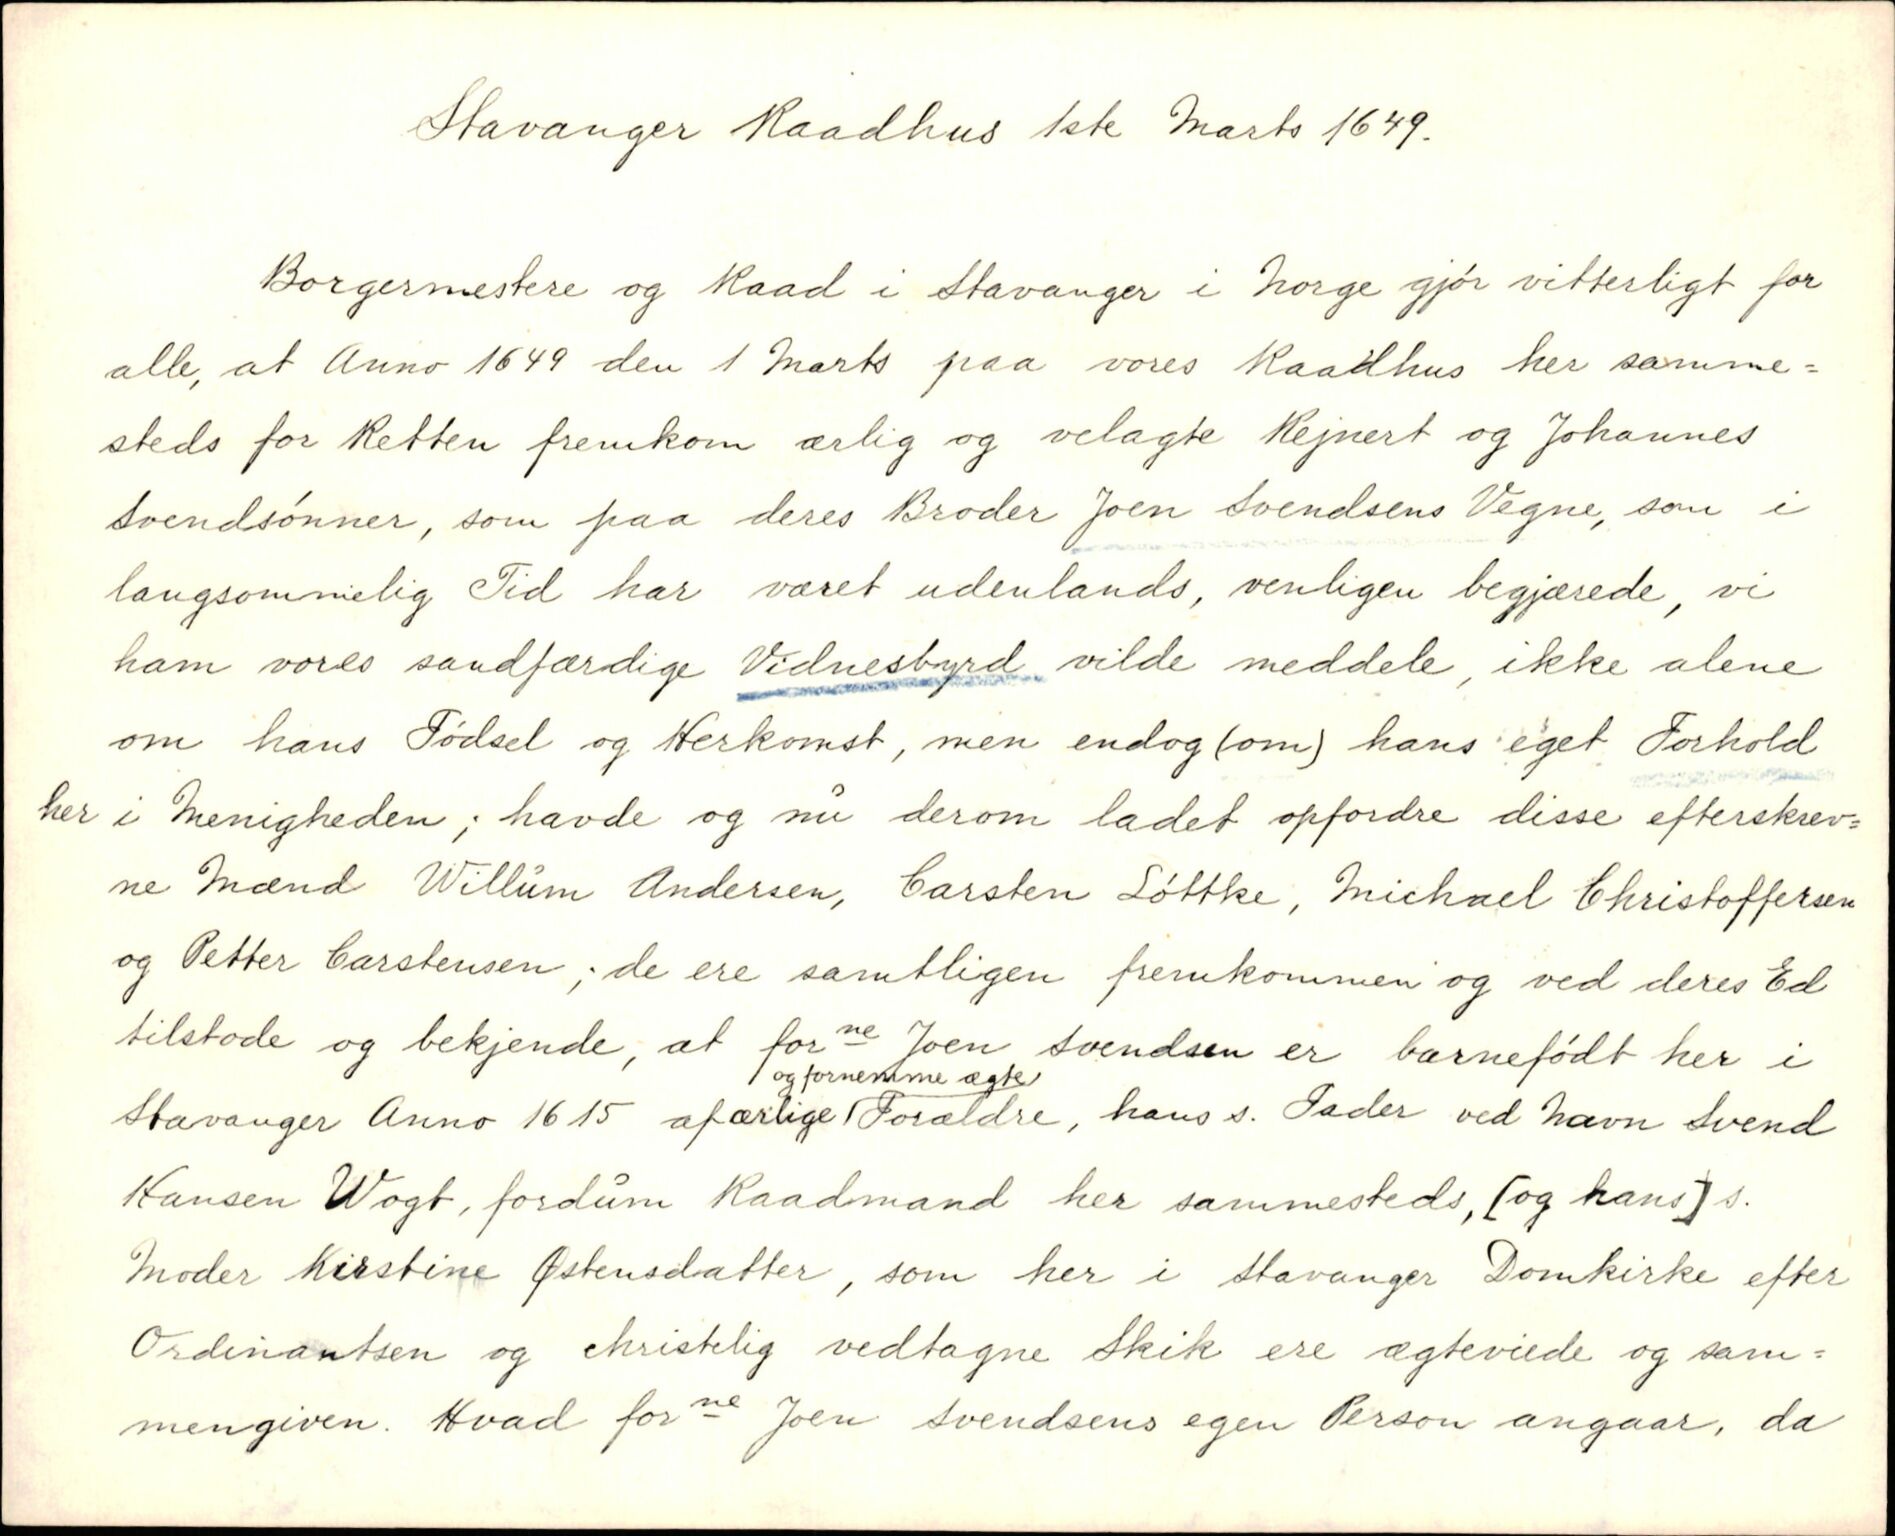 Stavanger Raadhus 1ste Marts 1649.
Borgermestere og Raad i Stavanger i Norge gjór vitterligt for
alle, at Anno 1649 den 1 Marts paa vores Raadhus her samme=
steds for Retten fremkom ærlig og velagte Rejnert og Johannes
Svendsónner, som paa deres Broder Joen Svendsens Vegne, som i
langsommelig Tid har været udenlands, venligen begjærede, vi
ham vores sandfærdige Vidnesbyrd vilde meddele, ikke alene
om hans Fódsel og Herkomst, men endog (om) hans eget Forhold
her i Menigheden; havde og nů derom ladet opfordre disse efterskrev=
ne Mænd Willům Andersen, Carsten Lóttke, Michael Christoffersen
og Petter Carstensen; de ere samtligen fremkommen og ved deres Ed
tilstode og bekjende, at forne Joen Svendsen er barnefódt her i
og fornemme ægte
Stavanger Anno 1615 af ærlige Forældre, hans s. Fader ved Navn Svend
Hansen Wogt, fordům Raadmand her sammesteds, [og hans] s.
Moder Kirstine Østensdatter, som her i Stavanger Domkirke efter
Ordinantsen og christelig vedtagne Skik ere ægteviede og sam=
mengiven. Hvad forne Joen Svendsens egen Person angaar, da